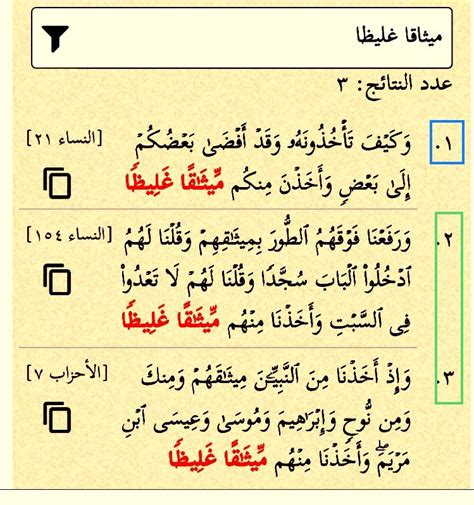 ميثاقا غليظا
عدد النتائج: ٣
١. وَكَيۡفَ تَأۡخُذُونَهُۥ وَقَدۡ أَفۡضَىٰ بَعۡضُكُمۡ [النساء ٢١]
إِلَىٰ بَعۡضٖ وَأَخَذۡنَ مِنكُم مِّيثَٰقًا غَلِيظٗا
٢. وَرَفَعۡنَا فَوۡقَهُمُ ٱلطُّورَ بِمِيثَٰقِهِمۡ وَقُلۡنَا لَهُمُ [النساء ١٥٤]
ٱدۡخُلُواْ ٱلۡبَابَ سُجَّدٗا وَقُلۡنَا لَهُمۡ لَا تَعۡدُواْ
فِي ٱلسَّبۡتِ وَأَخَذۡنَا مِنۡهُم مِّيثَٰقًا غَلِيظٗا
٣. وَإِذۡ أَخَذۡنَا مِنَ ٱلنَّبِيِّـۧنَ مِيثَٰقَهُمۡ وَمِنكَ [الأحزاب ٧]
وَمِن نُّوحٖ وَإِبۡرَٰهِيمَ وَمُوسَىٰ وَعِيسَى ٱبۡنِ
مَرۡيَمَۖ وَأَخَذۡنَا مِنۡهُم مِّيثَٰقًا غَلِيظٗا